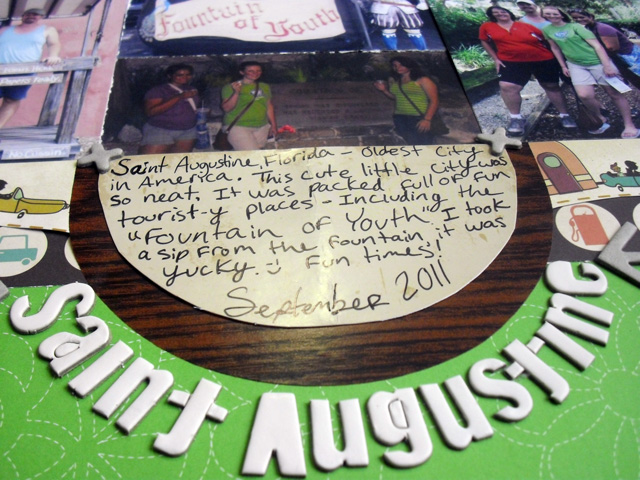 Fountain
of Youth
Saint Augustine, Florida - Oldest City
in America. This cute little city was
so neat. It was packed full of fun
tourist-y places - Including the
"Fountain of Youth". I took
a sip from the fountain, it was
yucky. Fun times!
September 2011
Saint Augustine